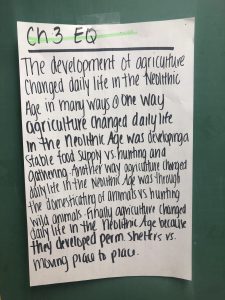 Ch 3 EQ
The development of agriculture
changed daily life in the Neolithic
Age in many ways. One way
agriculture changed daily life
in the Neolithic Age was developing a
stable food supply vs. hunting and
gathering. Another way agriculture changed
daily life in the Neolithic Age was through
the domesticating of animals vs. hunting
wild animals. Finally agriculture changed
daily life in the Neolithic Age because
they developed perm. shelters vs.
moving place to place.